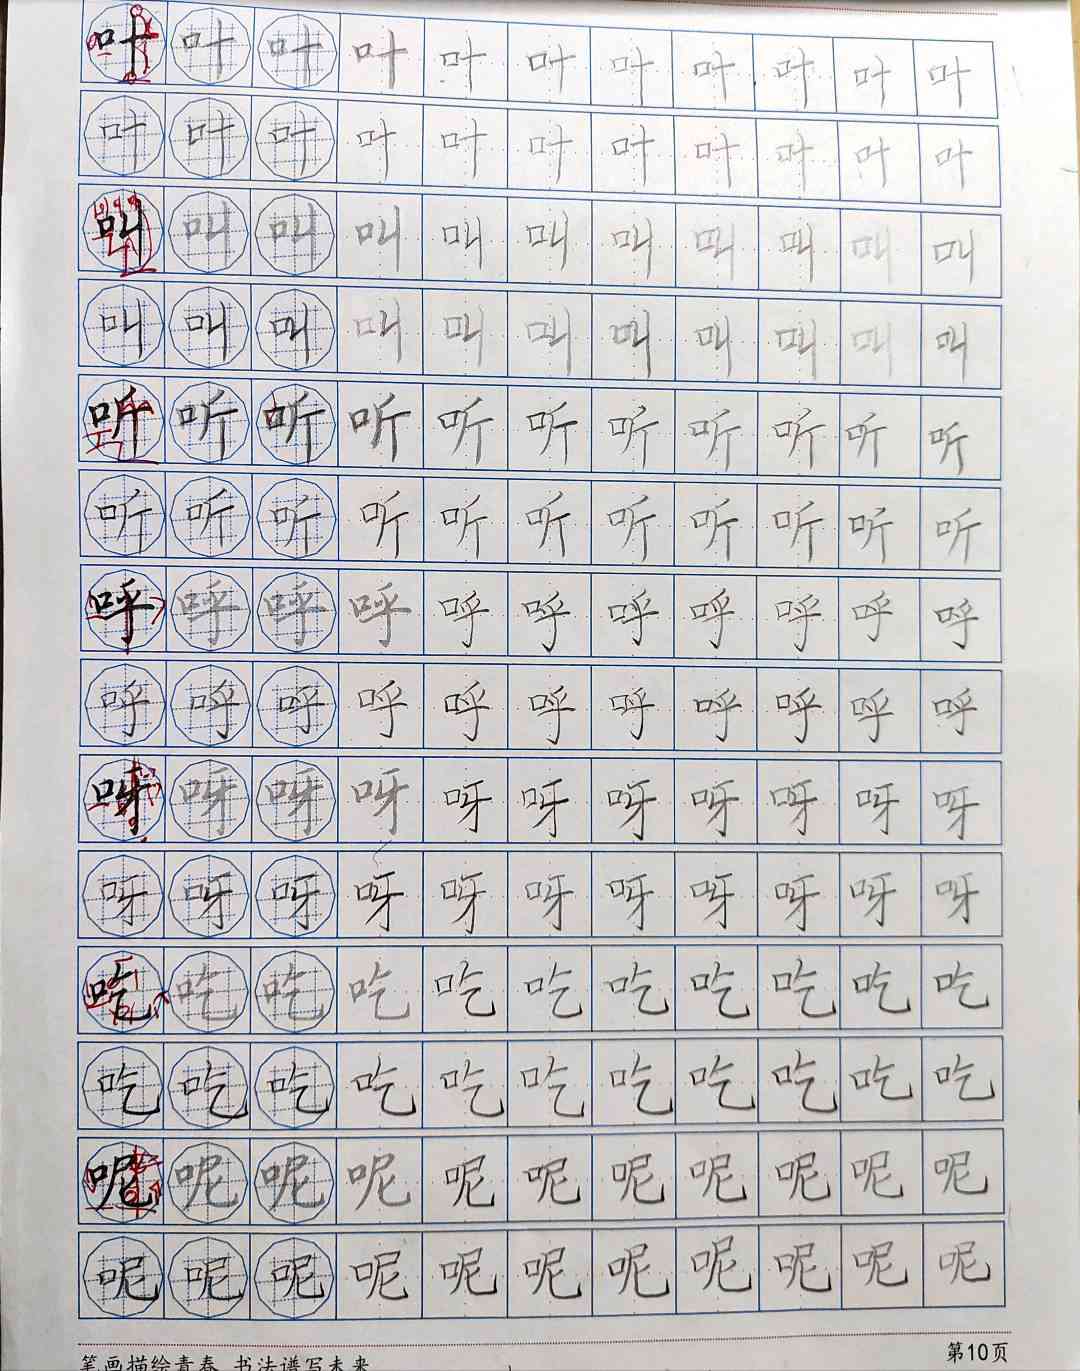 叶叶叶叶叶叶叶叶叶叶叶
叶叶叶叶叶叶叶叶叶叶叶
叫叫叫叫叫叫叫叫叫叫叫
叫叫叫叫叫叫叫叫叫叫叫
听听听听听听听听听听听
听听听听听听听听听听听
呼呼呼呼呼呼呼呼呼呼呼
呼呼呼呼呼呼呼呼呼呼呼
呀呀呀呀呀呀呀呀呀呀呀
呀呀呀呀呀呀呀呀呀呀呀
吃吃吃吃吃吃吃吃吃吃吃
吃吃吃吃吃吃吃吃吃吃吃
呢呢呢呢呢呢呢呢呢呢呢
呢呢呢呢呢呢呢呢呢呢呢
笔画描绘青春 书法谱写未来 第10页